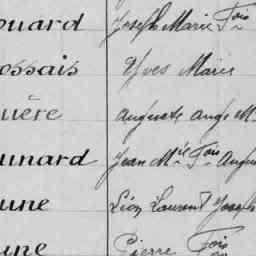 ouard Joseph Marie Fois
ossais Yves Marie
uère Auguste Ange M
unard Jean Mie Fois Augu
une Léon Laurent Joseph
une Pierre Fois